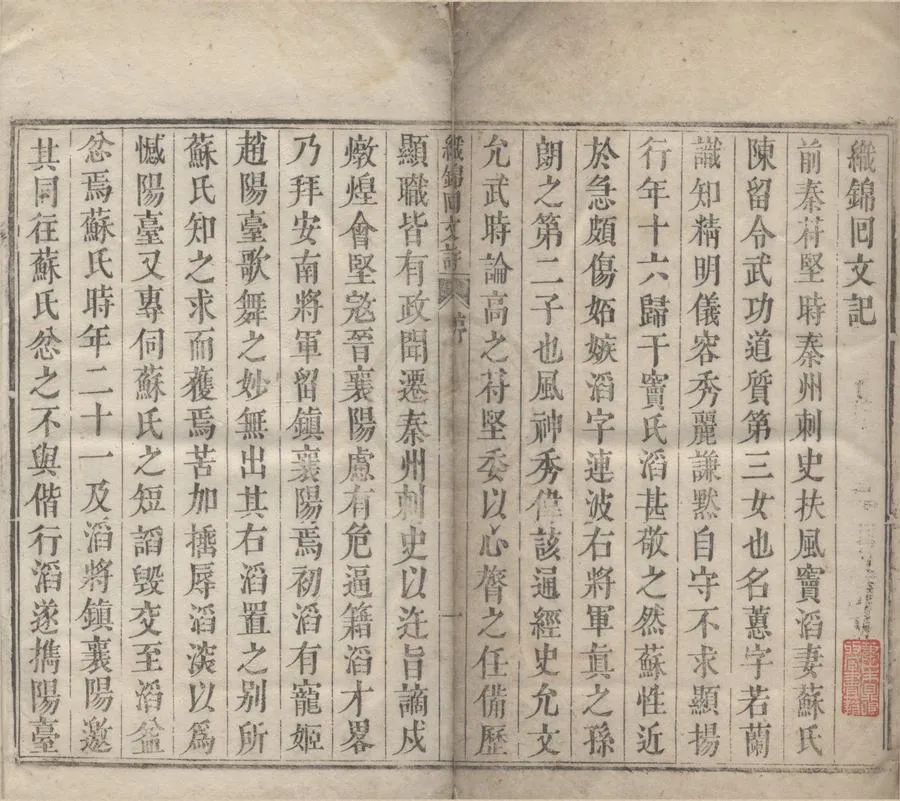 織錦回文記
前秦苻堅時秦州刺史扶風竇滔妻蘇氏
陳留令武功道質第三女也名蕙字若蘭
識知精明儀容秀麗謙黙自守不求顯揚
行年十六歸于竇氏滔甚敬之然蘇性近
於急頗傷妬嫉滔字連波右將軍真之孫
朗之第二子也風神秀偉該通經史允文
允武時論高之苻堅委以心膂之任備歷
織錦回文詩 序 一
顯職皆有政聞遷秦州刺史以迕旨謫戍
燉煌會堅宼晉襄陽慮有危逼籍滔才畧
乃拜安南將軍留鎮襄陽焉初滔有寵姬
趙陽臺歌舞之妙無出其右滔置之别所
蘇氏知之求而獲焉苦加棰辱滔深以為
憾陽臺又專伺蘇氏之短謟毁交至滔益
忿焉蘇氏時年二十一及滔將鎮襄陽邀
其同往蘇氏忿之不與偕行滔遂擕陽臺